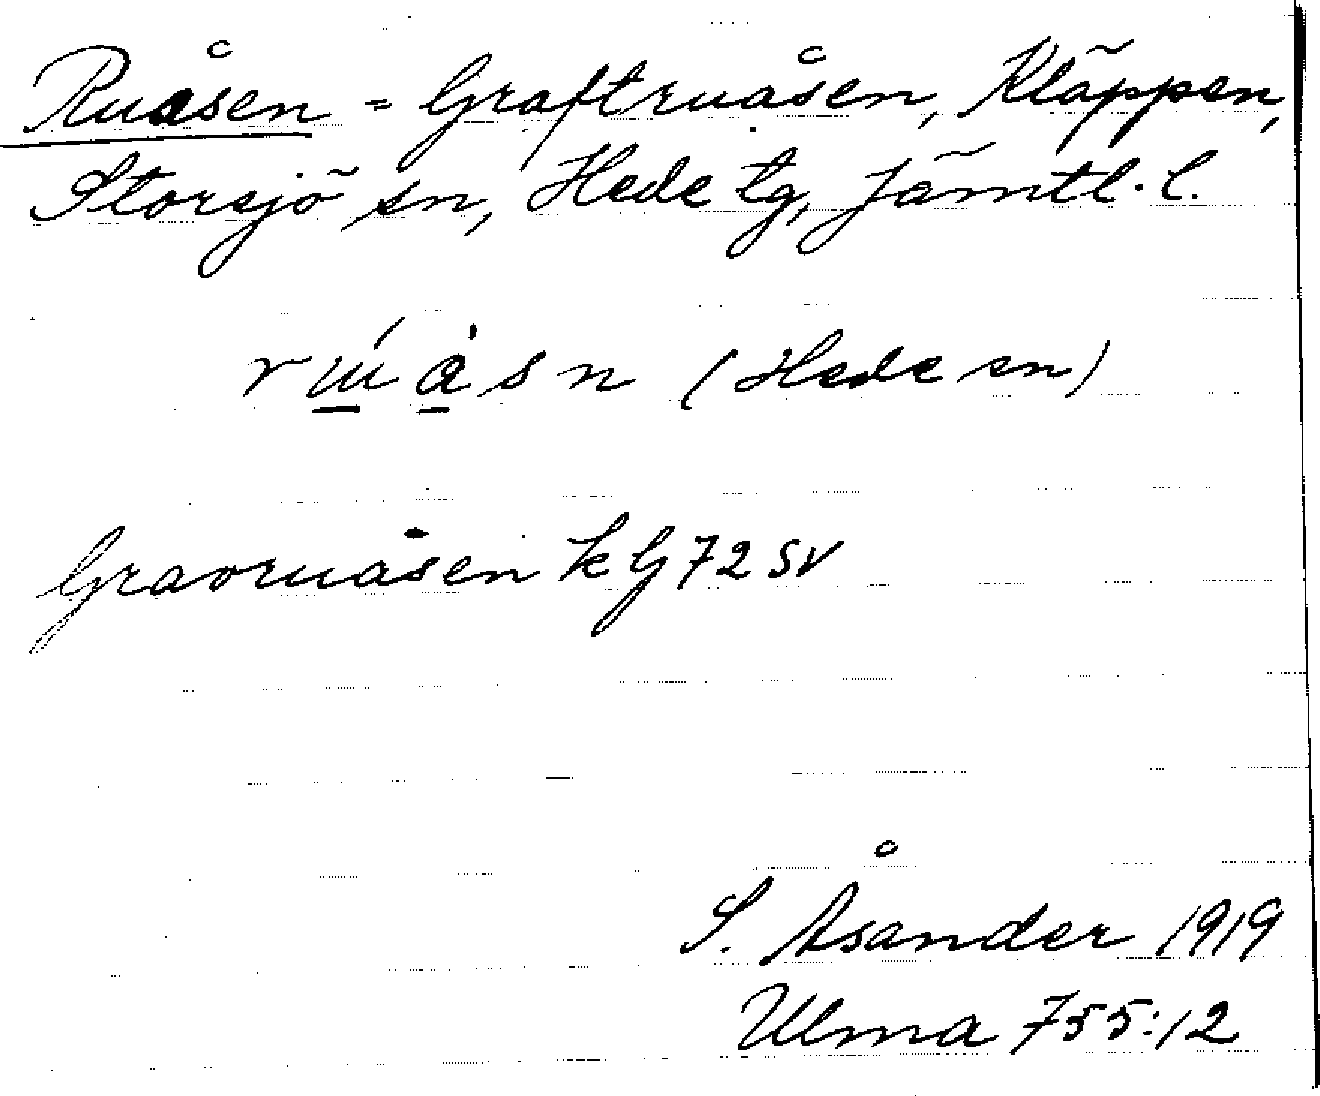 Ruåsen = Graftruåsen, Kläppen,
Storsjö sn, Hede tg, Jämtl. l.
(Hede sn)
Gravruåsen k G 72 SV
S. Åsander 1919
Ulma 755:12